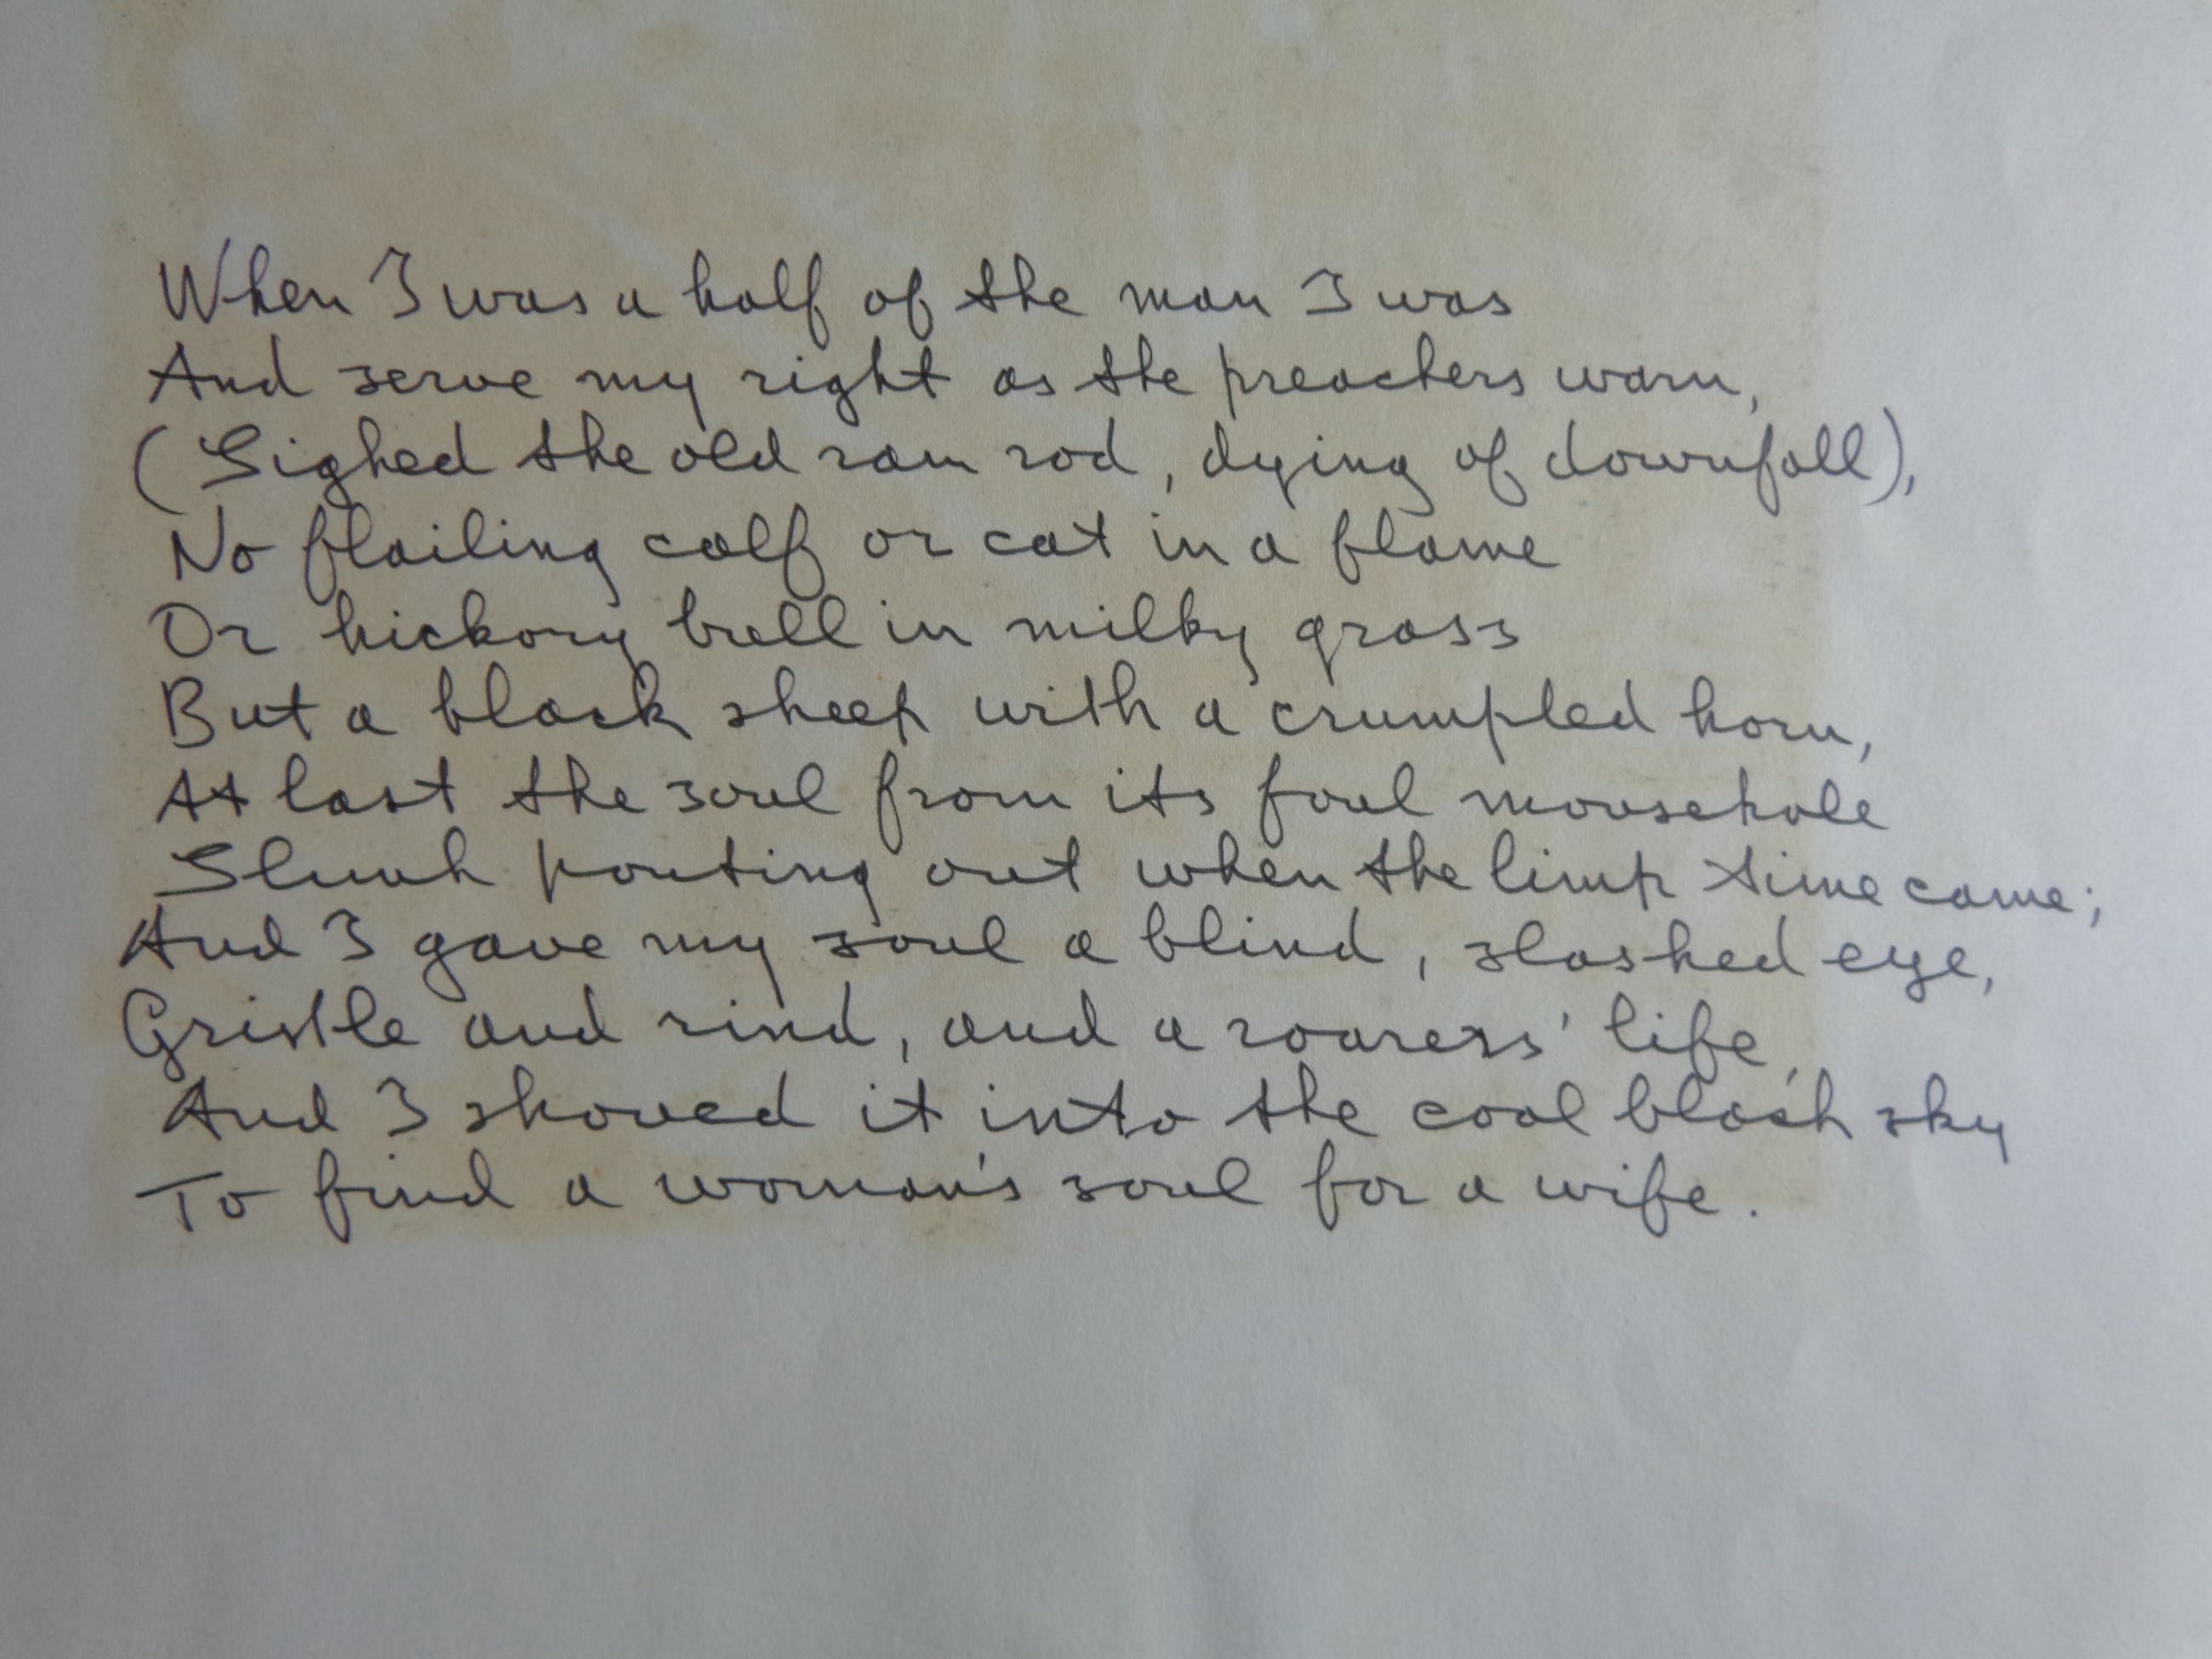 When I was a half of the man I was
And serve my right as the preachers warn,
(Sighed the old ram rod, dying of downfall),
No flailing calf or cat in a flame
Or hickory bull in milky grass
But a black sheep with a crumpled horn,
At last the soul from its foul mousehole
Slunk pouting out when the limp time came;
And I gave my soul a blind, slashed eye,
Gristle and rind, and a roarers' life,
And I shoved it into the coal black sky
To find a woman's soul for a wife.